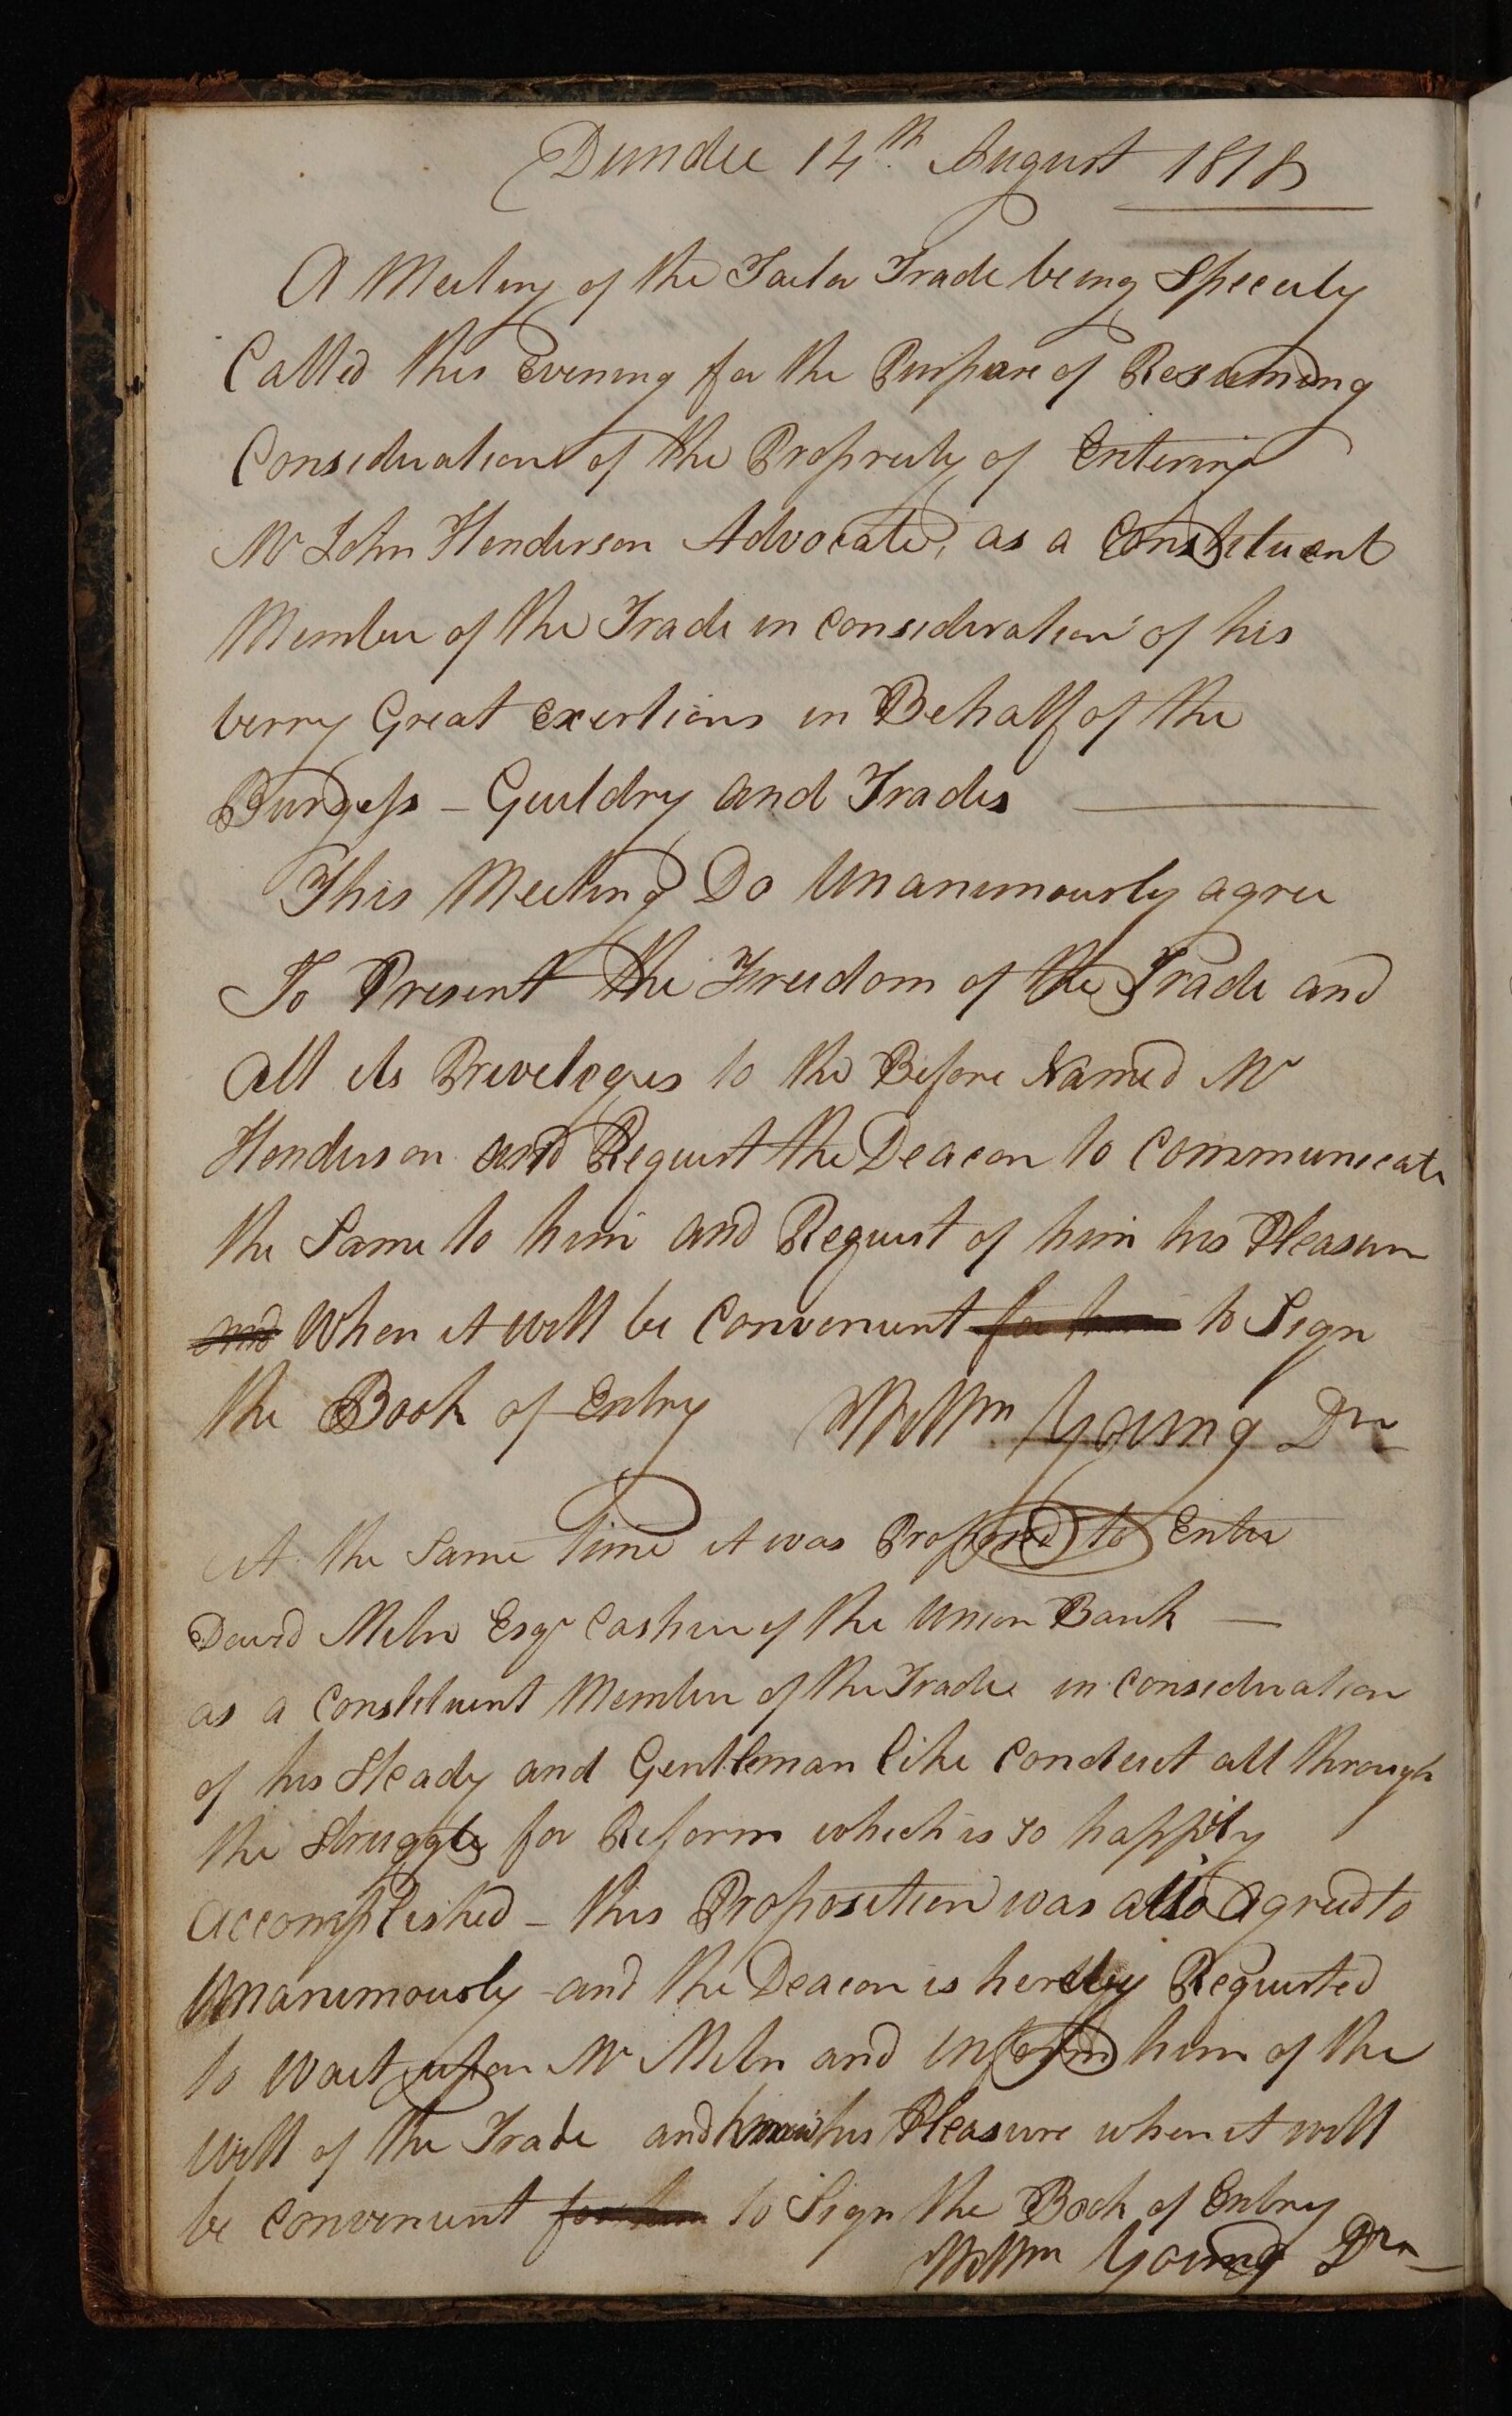 Dundee 14th August 1818
A Meeting of the Tailor Trade being Specialy
Called this Evening for the Purpose of Resuming
Consideration of the Propriety of Entering
Mr John Henderson Advocate, as a Constituent
Member of the Trade in consideration of his
verry Great exertions in Behalf of the
Burgess – Guildry and Trades
This Meeting Do Unanimously agree
To Present the Freedom of the Trade and
all its Preveleges to the Before Named Mr
Henderson and Request the Deacon to Communicate
the Same to him and Request of him his Pleasure
and When it will be Convenient for him to Sign
the Book of Entry Willm Young Dcn
At the Same Time it was Proposed to Enter
David Miln Esqr Cashier of the Union Bank —
as a Constituent Member of the Trade in consideration
of his Steady and Gentleman like Conduct all through
the Struggle for Reform which is so happily
accomplished – this Proposition was also agreed to
Unanimously and the Deacon is hereby Requested
to wait upon Mr Miln and inform him of the
will of the Trade and know his Pleasure when it will
be convenient for him to Sign the Book of Entry
Willm Young Dcn